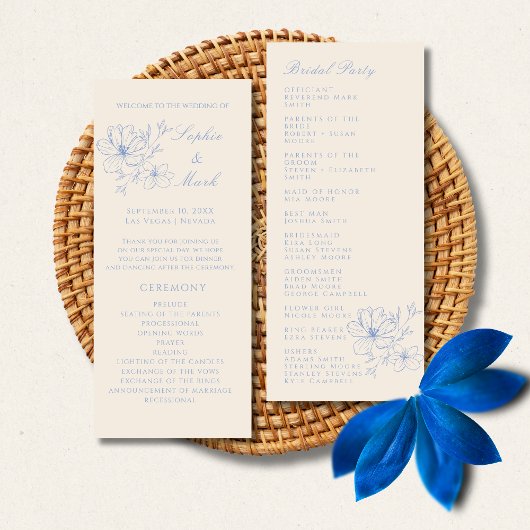 WELCOME TO THE WEDDING OF
Sophie
&
Mark
SEPTEMBER 10, 20XX
LAS VEGAS | NEVADA
THANK YOU FOR JOINING US
ON OUR SPECIAL DAY. WE HOPE
YOU CAN JOIN US FOR DINNER
AND DANCING AFTER THE CEREMONY.
CEREMONY
PRELUDE
SEATING OF THE PARENTS
PROCESSIONAL
OPENING WORDS
PRAYER
READING
LIGHTING OF THE CANDLES
EXCHANGE OF THE VOWS
EXCHANGE OF THE RINGS
ANNOUNCEMENT OF MARRIAGE
RECESSIONAL
Bridal Party
OFFICIANT
REVEREND MARK
SMITH
PARENTS OF THE
BRIDE
ROBERT + SUSAN
MOORE
PARENTS OF THE
GROOM
STEVEN + ELIZABETH
SMITH
MAID OF HONOR
MIA MOORE
BEST MAN
JOSHUA SMITH
BRIDESMAID
KIRA LONG
SUSAN STEVENS
ASHLEY MOORE
GROOMSMEN
AIDEN SMITH
BRAD MOORE
GEORGE CAMPBELL
FLOWER GIRL
NICOLE MOORE
RING BEARER
EZRA STEVENS
USHERS
ADAMS SMITH
STERLING MOORE
STANLEY STEVENS
KYLE CAMPBELL